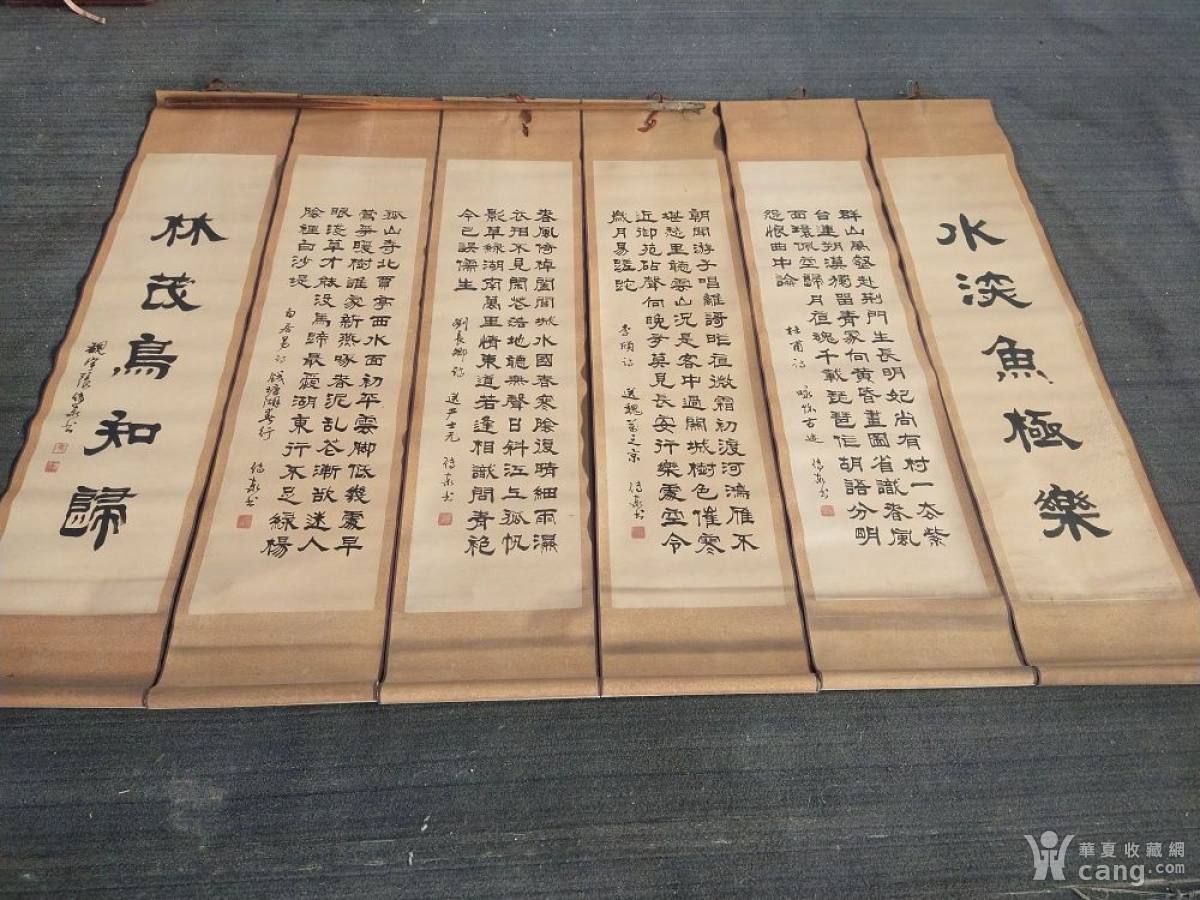 水淡魚極樂
群山萬壑赴荆門生長明妃尚有村一去紫
台連朔漠獨留青冢向黄昏畫圖省識春風
面環佩空歸月夜魂千載琵琶作胡語分明
怨恨曲中論
杜甫詩 咏懷古迹
朝聞游子唱離謌昨夜微霜初渡河鴻雁不
堪愁里聽雲山况是客中過關城樹色催寒
近御苑砧聲向晚多莫見長安行樂處空令
歲月易蹉跎
李頎詩 送魏萬之京
春風倚棹闔閭城水國春寒陰復晴細雨濕
衣看不見閑花落地聽無聲日斜江上孤帆
影草綠湖南萬里情東道若逢相識問青袍
今已誤儒生
劉長卿詩 送严士元
孤山寺北賈亭西水面初平雲脚低幾處早
鶯爭暖樹誰家新燕啄春泥乱花漸欲迷人
眼淺草才能没馬蹄最愛湖東行不足綠楊
陰裡白沙堤
白居易詩 钱塘湖春行
林茂鳥知歸
華夏收藏網
cang.com